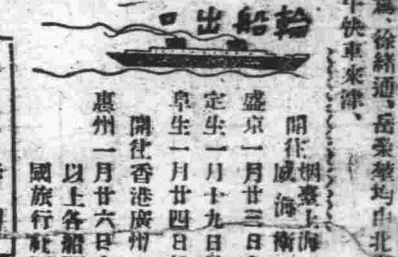 為、徐緒通、岳
中快車來津、
輪船出口
開往
烟臺上海
威海衛
盛京一月廿三日
定生一月十九日
阜生一月廿四日
開往香港廣州
惠州一月廿六日
以上各船
國旅行社